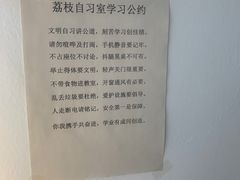 荔枝自习室学习公约
文明自习讲公道，刻苦学习创佳绩。
请勿喧哗及打闹，手机静音要记牢。
不占座位不讨论，抖腿晃桌不可有。
举止得体要文明，轻声关门很重要。
不带食物进教室，开窗通风有必要。
乱丢垃圾要杜绝，爱护设施要倡导。
人走断电请铭记，安全第一是保障。
你我携手共奋进，学业有成同创造。